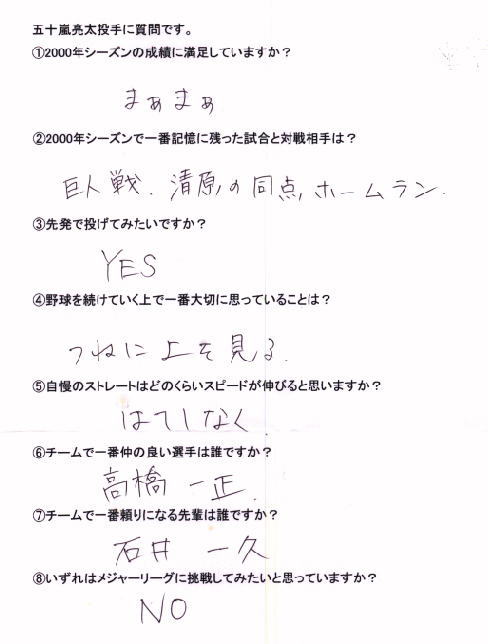 五十嵐亮太投手に質問です。
①2000年シーズンの成績に満足していますか？
まぁまぁ
②2000年シーズンで一番記憶に残った試合と対戦相手は？
巨人戦．清原の同点ホームラン．
③先発で投げてみたいですか？
YES
④野球を続けていく上で一番大切に思っていることは？
つねに上を見る．
⑤自慢のストレートはどのくらいスピードが伸びると思いますか？
はてしなく
⑥チームで一番仲の良い選手は誰ですか？
高橋一正．
⑦チームで一番頼りになる先輩は誰ですか？
石井一久
⑧いずれはメジャーリーグに挑戦してみたいと思っていますか？
NO